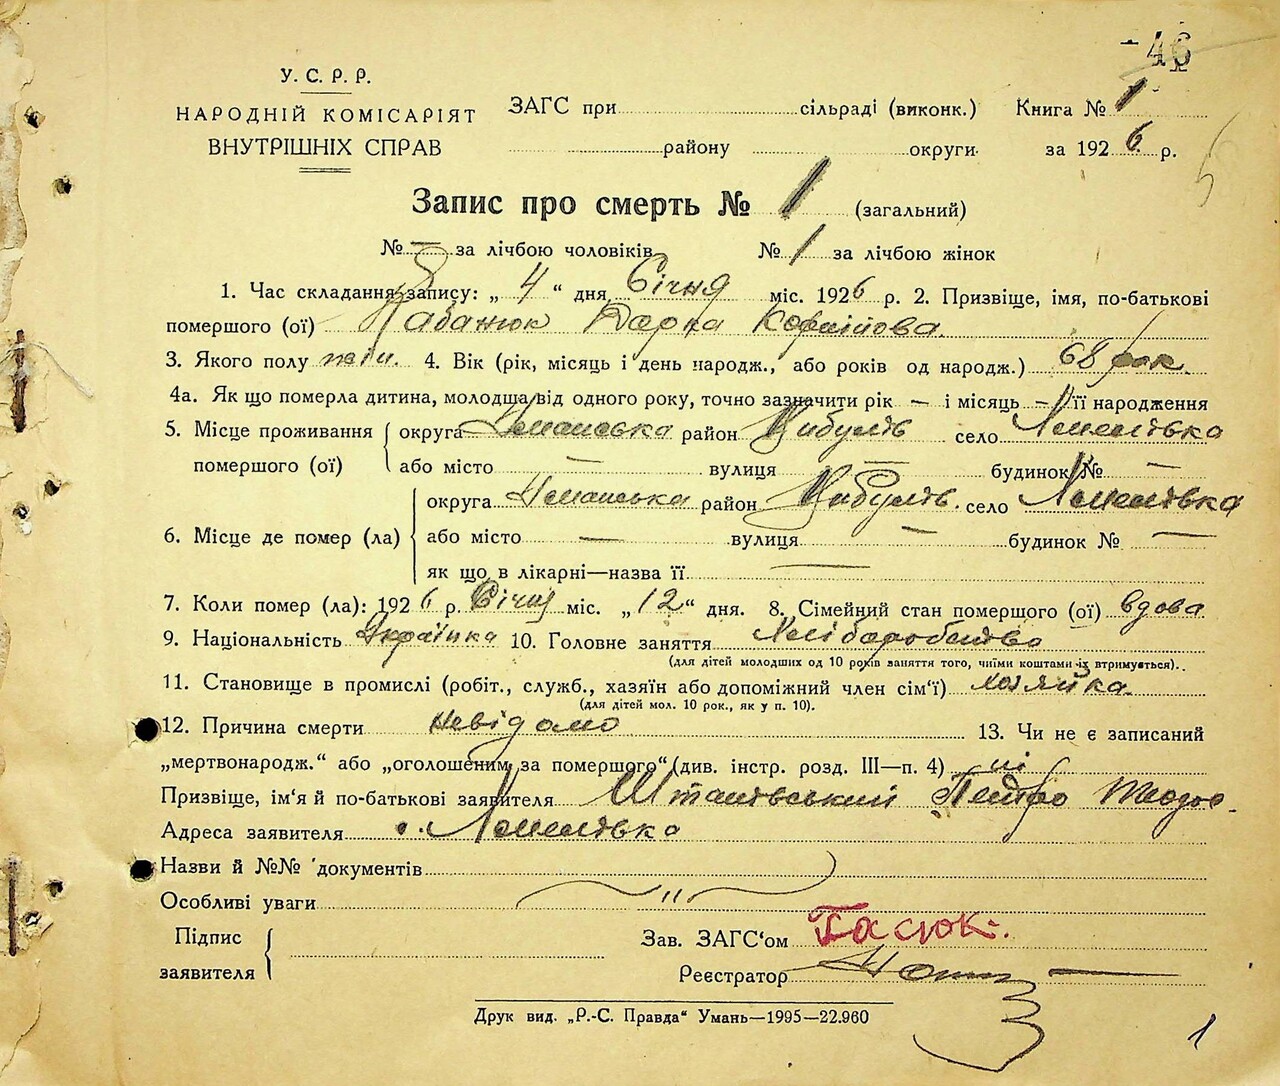 46
У. С. Р. Р.
НАРОДНІЙ КОМІСАРІЯТ
ВНУТРІШНІХ СПРАВ
ЗАГС при сільраді (виконк.) Книга № 1
району округи за 1926 р.
Запис про смерть № 1 (загальний)
№ — за лічбою чоловіків № 1 за лічбою жінок
1. Час складання запису: „ 4 “ дня Січня міс. 1926 р. 2. Призвіще, імя, по-батькові
помершого (ої) Дарка
3. Якого полу жін. 4. Вік (рік, місяць і день народж., або років од народж.) 68 рок.
4а. Як що померла дитина, молодша від одного року, точно зазначити рік — і місяць — її народження
5. Місце проживання округа Уманська район Цибулів село
помершого (ої) або місто — вулиця — будинок № —
округа Уманська район Цибулів. село
6. Місце де помер (ла) або місто — вулиця — будинок № —
як що в лікарні—назва її —
7. Коли помер (ла): 1926 р. Січня міс. „12“ дня. 8. Сімейний стан помершого (ої) вдова
9. Національність Українка 10. Головне заняття Хліборобство
(для дітей молодших од 10 років заняття того, чиїми коштами їх втримується).
11. Становище в промислі (робіт., служб., хазяїн або допоміжний член сім'ї) хозяйка
(для дітей мол. 10 рок., як у п. 10).
12. Причина смерти невідомо 13. Чи не є записаний
„мертвонародж.“ або „оголошеним за помершого“ (див. інстр. розд. III—п. 4) ні
Призвіще, ім'я й по-батькові заявителя
Адреса заявителя с.
Назви й №№ документів
Особливі уваги "
Підпис
заявителя
Зав. ЗАГС'ом Гасюк.
Реєстратор
Друк вид. „Р.-С. Правда“ Умань—1995—22.960
1